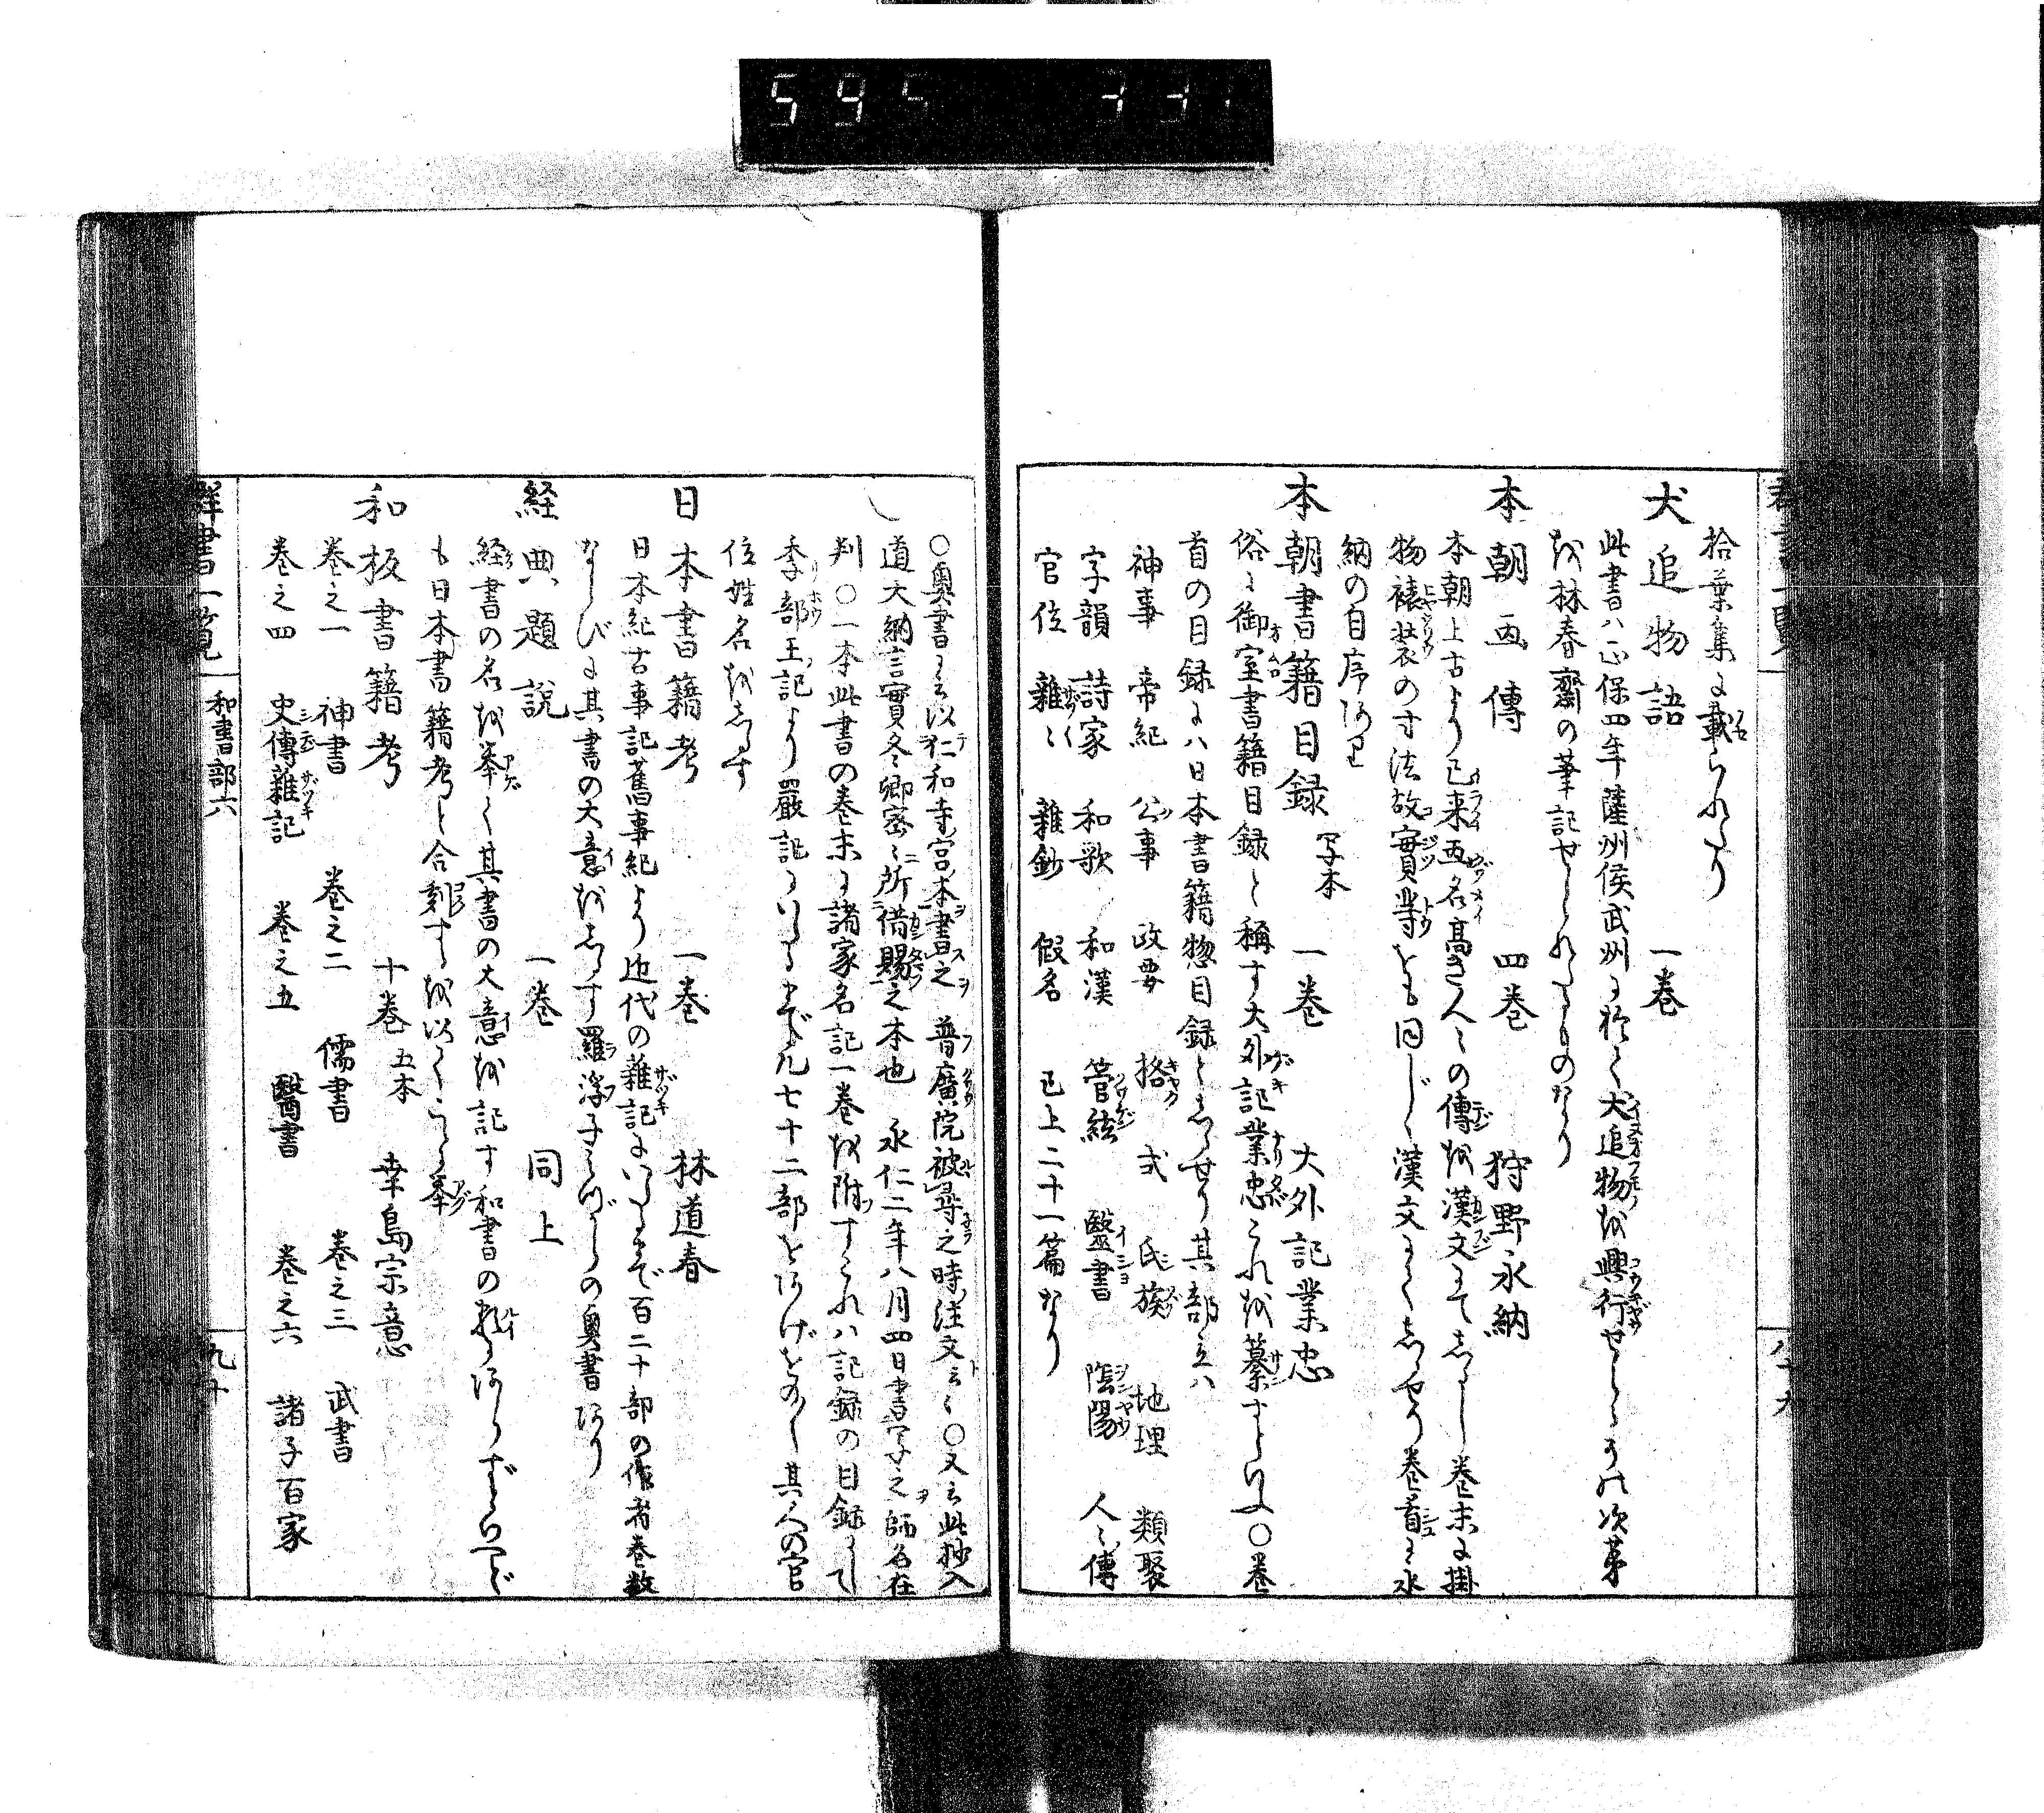 拾葉集に載られたり
犬追物語 一巻
此書ハ正保四年薩州侯武州に於て犬追物を興行せしときの次第
を林春齋の筆記せられたるものなり
本朝画傳 四巻 狩野永納
本朝上古より已来画名高き人々の傳を漢文にてしるし巻末に掛
物裱装の寸法故實等をも同じく漢文にてしるせり巻首に永
納の自序あり
本朝書籍目録 写本 一巻 大外記業忠
俗に御室書籍目録と稱す大外記業忠これを纂すといふ〇巻
首の目録にハ日本書籍惣目録としるせり其部立ハ
神事 帝紀 公事 政要 格 式 氏族 地理 類聚
字韻 詩家 和歌 和漢 管絃 醫書 陰陽 人々傳
官位 雜々 雜鈔 假名 已上二十一篇なり
〇奥書に云以仁和寺宮本書之 普廣院被尋之時注文云々〇又云此抄入
道大納言實冬卿密々所借賜之本也 永仁二年八月四日書写之師名在
判〇一本此書の巻末に諸家名記一巻を附すこれハ記録の目録にして
李部王記より嚴記にいたるまで凡七十二部をあげをの〱其人の官
位姓名をしるす
日本書籍考 一巻 林道春
日本紀古事記舊事紀より近代の雜記にいたるまで百二十部の作者巻数
ならびに其書の大意をしるす羅浮子みづからの奥書あり
経典題說 一巻 同上
経書の名を挙て其書の大意を記す和書の類にあらずといへど
も日本書籍考と合刻するを以てこゝに挙
和板書籍考 十巻 五本 幸島宗意
巻之一 神書 巻之二 儒書 巻之三 武書
巻之四 史傳雜記 巻之五 醫書 巻之六 諸子百家
群書一覧 和書部六 九十